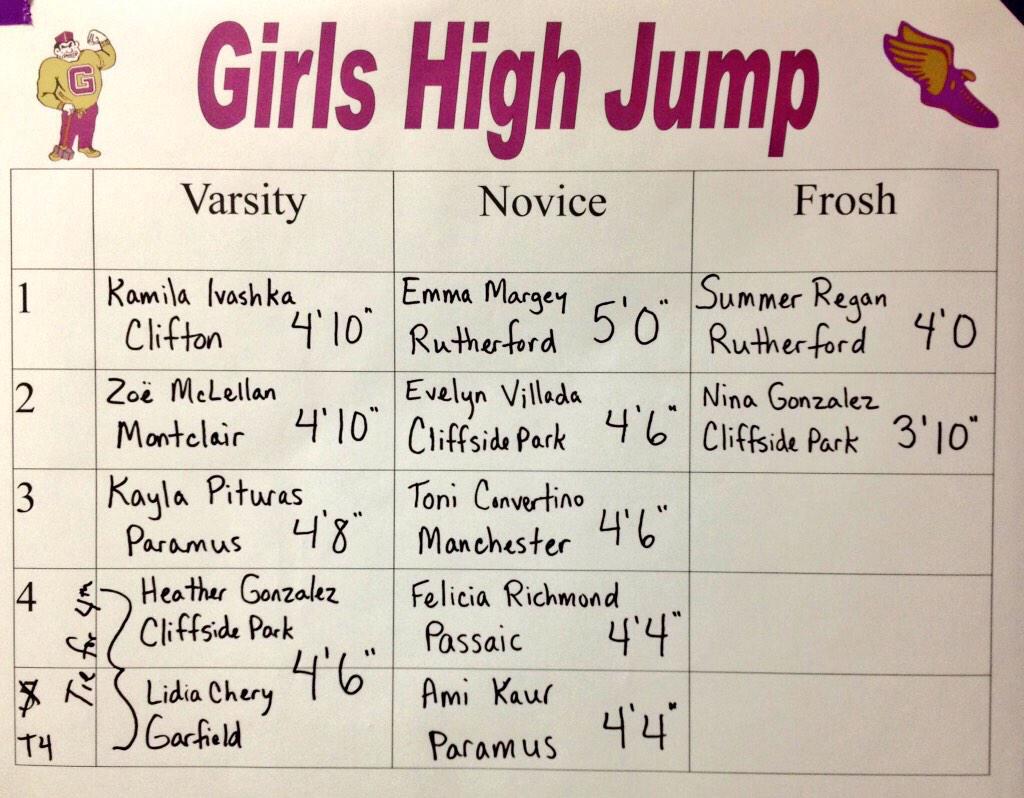 G
Girls High Jump
Varsity
Novice
Frosh
1
Kamila Ivashka
Clifton 4'10"
Emma Margey
Rutherford 5'0"
Summer Regan
Rutherford 4'0
2
Zoë McLellan
Montclair 4'10"
Evelyn Villada
Cliffside Park 4'6"
Nina Gonzalez
Cliffside Park 3'10"
3
Kayla Pituras
Paramus 4'8"
Toni Convertino
Manchester 4'6"
4
Tie for 4th
Heather Gonzalez
Cliffside Park
4'6"
Felicia Richmond
Passaic 4'4"
5
T4
Lidia Chery
Garfield
Ami Kaur
Paramus 4'4"